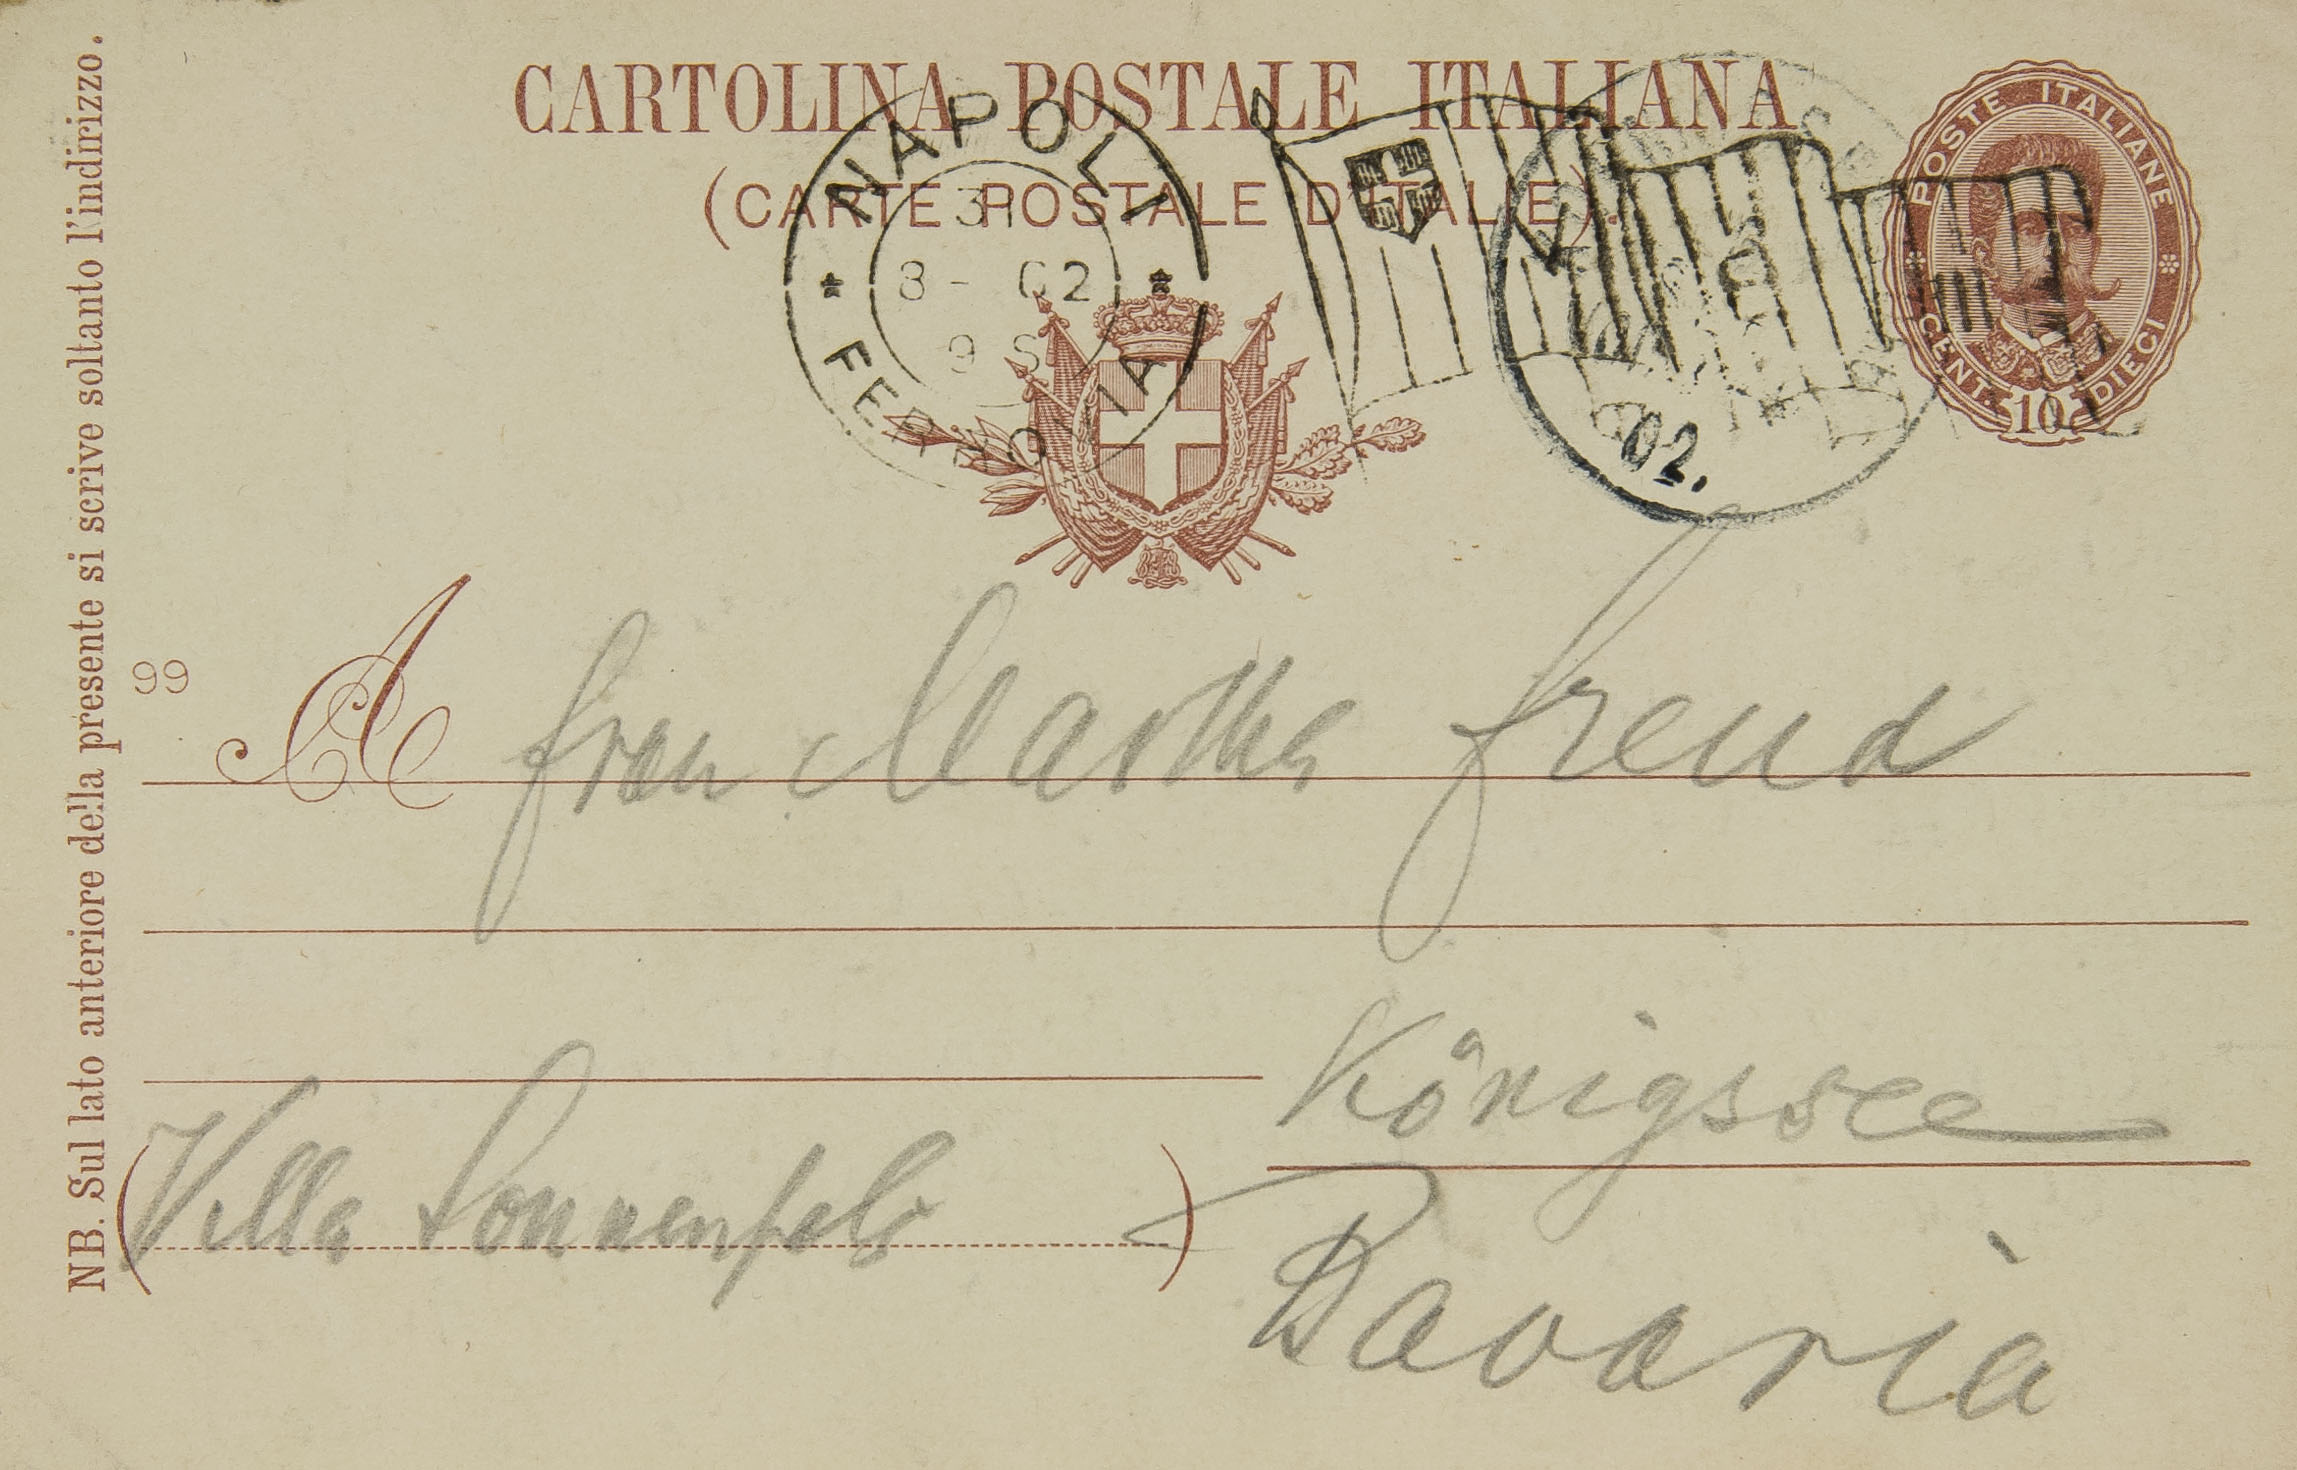 CARTOLINA POSTALE ITALIANA
(CARTE POSTALE D'ITALIE).
NAPOLI
31
8 - 02
9 S
FERROVIA
02.
POSTE ITALIANE
CENT. 10 DIECI
NB. Sul lato anteriore della presente si scrive soltanto l'indirizzo.
99
A Frau Martha Freud
Königssee
(Villa Sonnenfels)
Bavaria